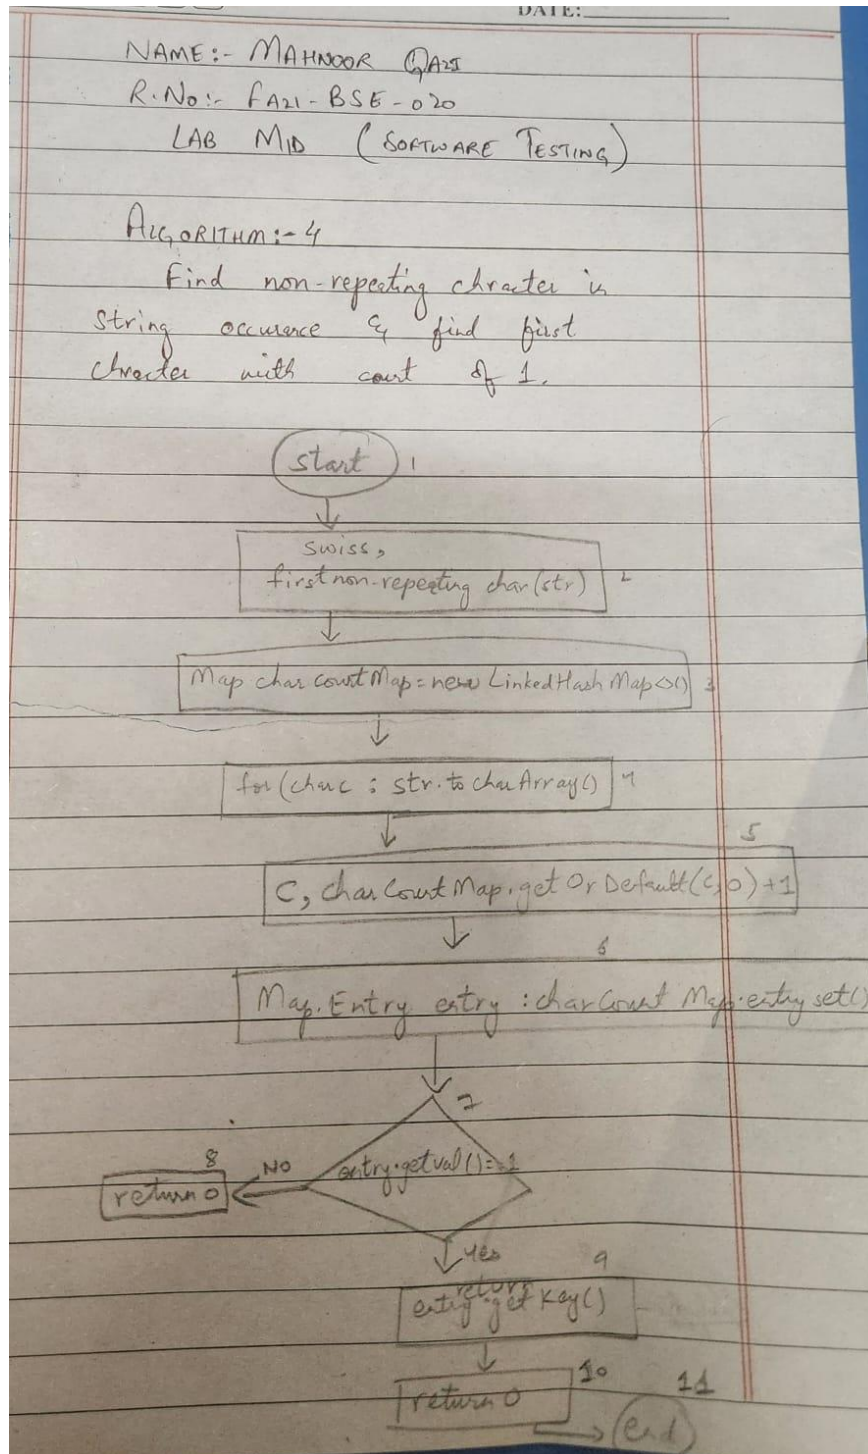 DATE:
NAME:- MAHNOOR QAZI
R.No:- FA21-BSE-020
LAB MID (SOFTWARE TESTING)
ALGORITHM:- 4
Find non-repeating chracter in
string occurence & find first
chracter with count of 1.
start 1
swiss,
first non-repeating char(str) 2
Map char count Map = new LinkedHashMap<>() 3
for (char c : str.to charArray() 4
5
C, charCountMap.getOrDefault(c,0)+1
6
Map.Entry entry : charCount Map.entryset()
7
8
NO
entry.getval()==1
return 0
yes
9
return
entry.getKey()
10
11
return 0
end